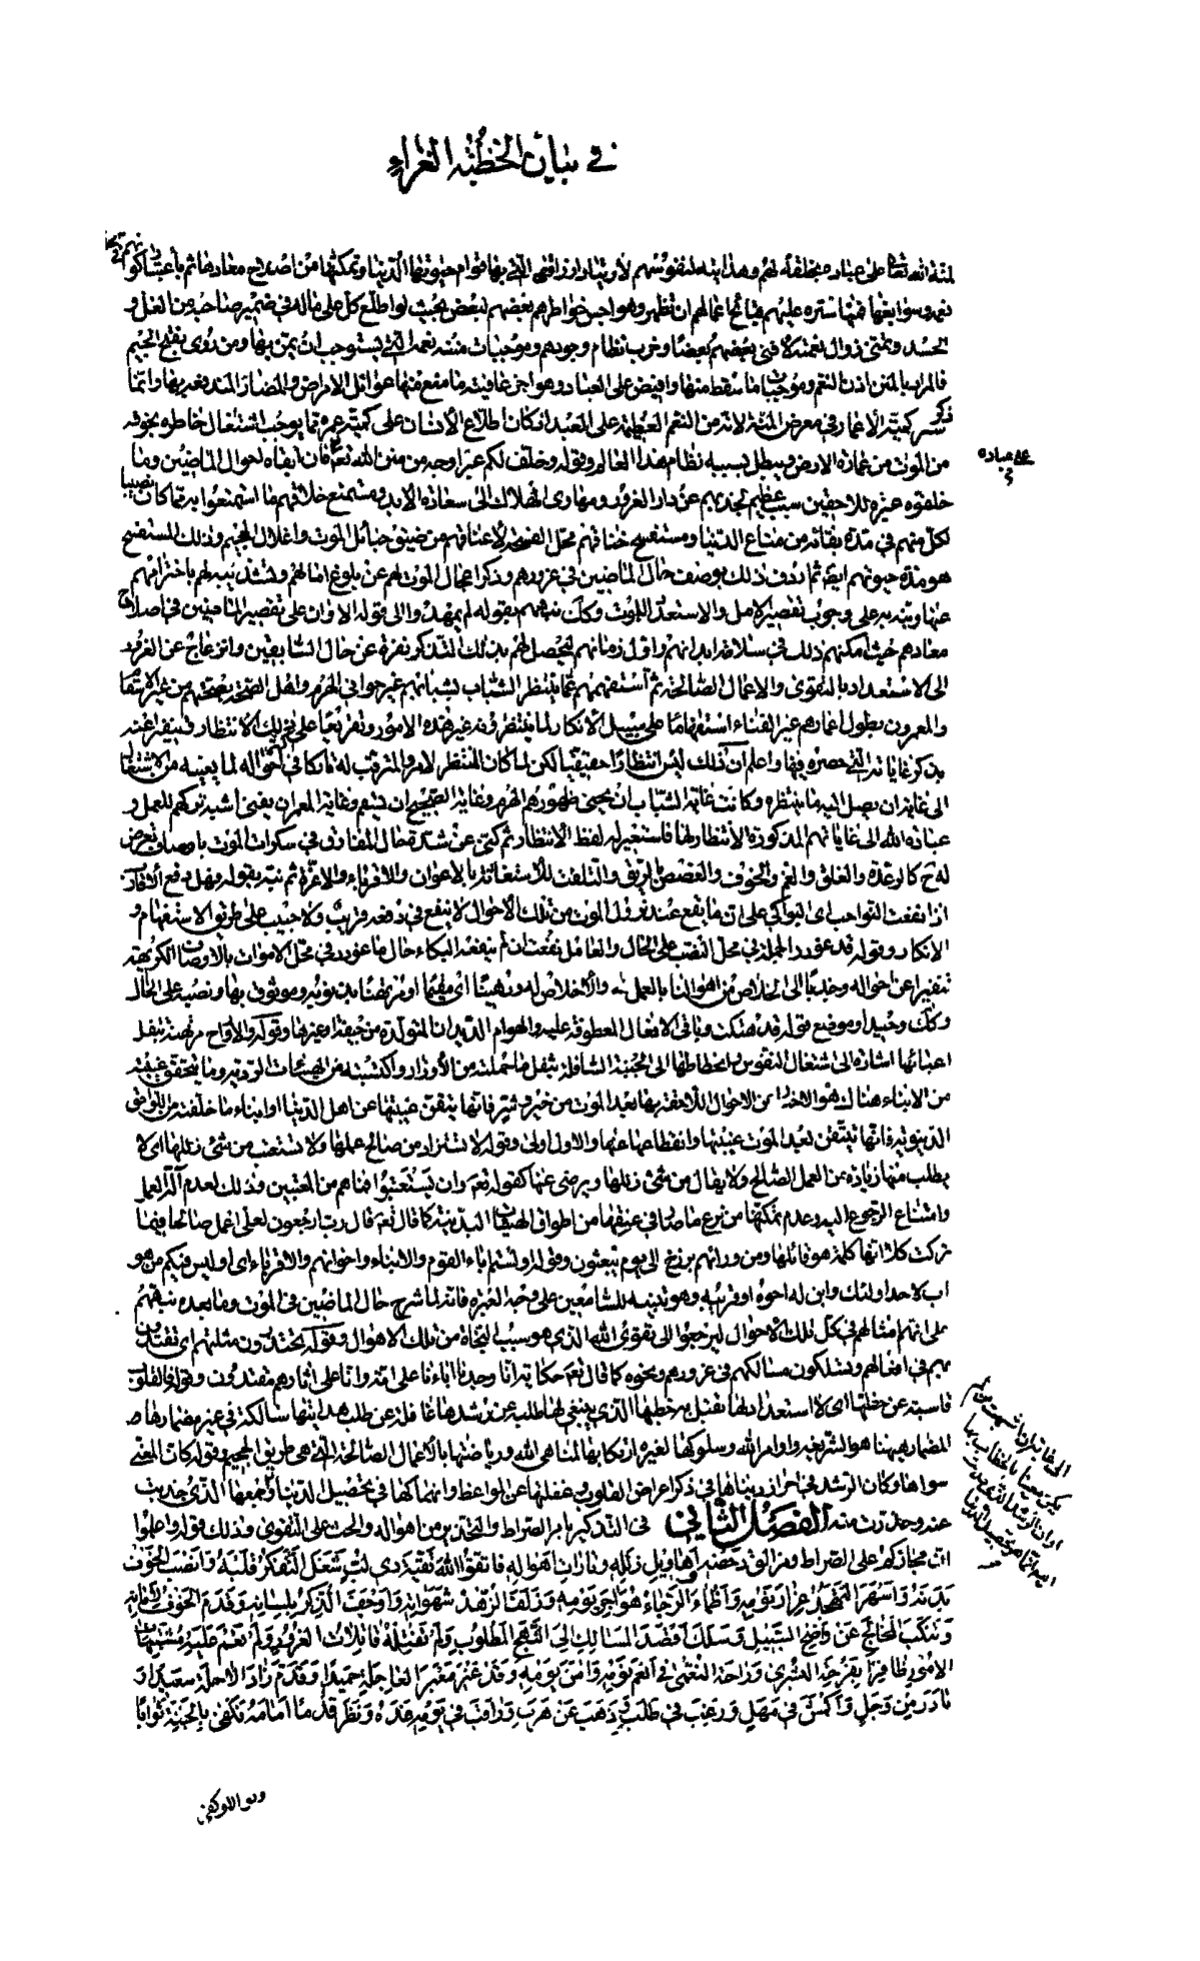 في بيان الخطبة الغراء
لمنة الله تعالى على عباده بخلقه لهم وهدايته لنفوسهم لارتياد ارزاقهم التي بها قوام حيوتها الدنيا وتمكنها من اصلاح معادها ثم باعتبار كون
نعمه وسوابغها فمنها ستره عليهم قبائح اعمالهم ان تظهر وهواجس خواطرهم بعضهم لبعض بحيث لو اطلع كل على ما له في ضمير صاحبه من الغل و
الحسد وتمنى زوال نعمته لافنى بعضهم بعضا وخرب نظام وجودهم وموجبات مننه نعمه التي يستوجب ان يمتن بها ومن روى بفتح الجيم
فالمراد بالمنن اذن النعم وموجباتها ما سقط منها وافيض على العباد وحواجز عافيته ما منع منها عوائل الامراض والمضار المندفعة بها وانما
ذكر ستر كمية الاعمار في معرض المنة لانه من النعم العظيمة على العبد اذ كان اطلاع الانسان على كمية عمره مما يوجب اشتغال خاطره بخوفه
من الموت عن عمارة الارض ويبطل بسببه نظام هذا العالم وقوله وخلف لكم عبرا وجه من منن الله تعالى فان ابقاء احوال الماضين وما
خلفوه عبرة للاحقين سبب عظيم تجذبهم عن دار الغرور ومهاوي الهلاك الى سعادة الابد ومستمتع خلاقهم ما استمتعوا به مما كان نصيبا
لكل منهم في مدة بقائه من متاع الدنيا ومستفسح خناقهم محل الفسحة لاعناقهم من ضيق حبائل الموت واغلال الجحيم وذلك المستفسح
هو مدة حيوتهم ايضا ثم اردف ذلك بوصف حال الماضين في غرورهم وذكر اعجال الموت لهم عن بلوغ امالهم وتشذيبه لهم باخترامهم
عنها ونبه به على وجوب تقصير الامل والاستعداد للموت وكذلك نبههم بقوله لم يمهدوا الى قوله الاوان على تقصير الماضين في اصلاح
معادهم حيث امكنهم ذلك في سلامة ابدانهم واول زمانهم ليحصل لهم بذلك التذكر نفرة عن حال السابقين وانزعاج عن الغرور
الى الاستعداد بالتقوى والاعمال الصالحة ثم استفهمهم عما ينتظر الشباب بشبابهم غير حواني الهرم واهل الصحة بصحتهم من غير الاسقام
والمعمرون بطول اعمارهم غير الفناء استفهاما على سبيل الانكار لما ينتظرونه غير هذه الامور وتقريعا على ذلك الانتظار وتنفيرا عنه
بذكر غاياته التي حصره فيها واعلم ان ذلك ليس انتظارا حقيقيا لكن لما كان المنتظر لامر والمترقب له تاركا في احواله لما يعنيه من الاشتغال
الى غاية ان يصل اليه ما ينتظره وكانت غاية الشباب ان يحني ظهورهم الهرم وغاية الصحيح ان يسقم وغاية المعمر ان يفنى اشبه تركهم للعمل و
عبادة الله الى غاياتهم المذكورة الانتظار لها فاستعير له لفظ الانتظار ثم كنى عن شدة حال المفارق في سكرات الموت باوصاف تعرض
له ح كالرعدة والقلق والغم والخوف والغصص بالريق والتلفت للاستغاثة بالاعوان والاقرباء والاعزة ثم نبه بقوله وهل دفع الاقارب
او نفعت النواحب اى البواكي على ان ما يقع عند نزول الموت من تلك الاحوال لا ينفع في دفعه قريب ولا حبيب على طريق الاستفهام و
الانكار وقوله قد غودر الجملة في محل النصب على الحال والعامل نفعت ان لم ينفعه البكاء حال ما غودر في محل الاموات بالاوصاف الكريهة
تنفيرا عن احواله وجذبا الى الخلاص من اهوالها بالعمل لله والاخلاص له ورهينا اي مقيما او مرتهنا بذنوبه وموثوق بها ونصبه على الحال
وكذلك وحيدا وموضع قوله قد هتكت وباقي الافعال المعطوفة عليه والهوام الديدان المتولدة من جيفته او غيرها وقوله والارواح مرتهنة بثقل
اعبائها اشارة الى اشتغال النفوس وانحطاطها الى الجنبة السافلة بثقل ما حملته من الاوزار واكتسبته من الهيئات الردية وما يتحقق غيبته
من الانباء هناك هو الاخبار عن الاحوال اللاحقة بها بعد الموت من خير وشر فانها يتيقن غيبتها عن اهل الدنيا او ابناء ما خلفته من اللواحق
الدنيوية فانها تتيقن بعد الموت غيبتها وانقطاعها عنها والاول اولى وقوله لا تستزاد من صالح عملها ولا تستعتب من سيئ زللها اى لا
يطلب منها زيادة من العمل الصالح ولا يقال من سيئ زللها ويرضى عنها كقوله تعالى وان يستعتبوا فما هم من المعتبين وذلك لعدم آلة العمل
وامتناع الرجوع اليه وعدم تمكنها من نزع ما صار في عنقها من اطواق الهيئات البدنية كما قال تعالى قال رب ارجعون لعلي اعمل صالحا فيما
تركت كلا انها كلمة هو قائلها ومن ورائهم برزخ الى يوم يبعثون وقوله اولستم اباء القوم والابناء واخوانهم والاقرباء اى اوليس فيكم من هو
اب لاحد اولئك وابن له او اخوه او قريبه وهو تنبيه للسامعين على وجه العبرة فانه لما شرح حال الماضين في الموت وما بعده نبههم
على انهم امثالهم في كل تلك الاحوال ليرجعوا الى تقوى الله الذي هو سبب النجاة من تلك الاهوال وقوله تحتذون مثلهم اى تقتدون
بهم في افعالهم وتسلكون مسالكهم في غرورهم ونحوه كما قال تعالى حكاية انا وجدنا اباءنا على امة وانا على اثارهم مقتدون وقوله فالقلوب
قاسية عن حظها اى لا استعداد لها تقبل به حظها الذي ينبغي لها طلبه عن رشدها غافلة عن طلب هدايتها سالكة في غير مضمارها
المضمار ههنا هو الشريعة واوامر الله وسلوكها لغيره ارتكابها لمناهي الله ورياضتها بالاعمال الصالحة التي هي طريق الجحيم وقوله كان المعني
سواها وكان الرشد في احراز دنياها في ذكر اعراض القلوب وغفلتها عن المواعظ وانهماكها في تحصيل الدنيا وجمعها الذي جذبت
عنه وحذرت منه الفصل الثاني في التذكير بامر الصراط والتحذير من اهواله والحث على التقوى وذلك قوله واعلموا
ان مجازكم على الصراط ومزالق دحضه واهاويل زلله وتارات اهواله فاتقوا الله تقية ذي لب شغل التفكر قلبه وانصب الخوف
بدنه واسهر التهجد غرار نومه واظمأ الرجاء هواجر يومه وظلف الزهد شهواته واوجف الذكر بلسانه وقدم الخوف لامانه
وتنكب المخالج عن وضح السبيل وسلك اقصد المسالك الى النهج المطلوب ولم تفتله فاتلات الغرور ولم تعم عليه مشتبهات
الامور ظافرا بفرحة البشرى وراحة النعمى في انعم نومه وامن يومه وقد عبر معبر العاجلة حميدا وقدم زاد الاجلة سعيدا و
بادر من وجل واكمش في مهل ورغب في طلب وذهب عن هرب وراقب في يومه غده ونظر قدما امامه فكفى بالجنة ثوابا
ونوالا وكفى